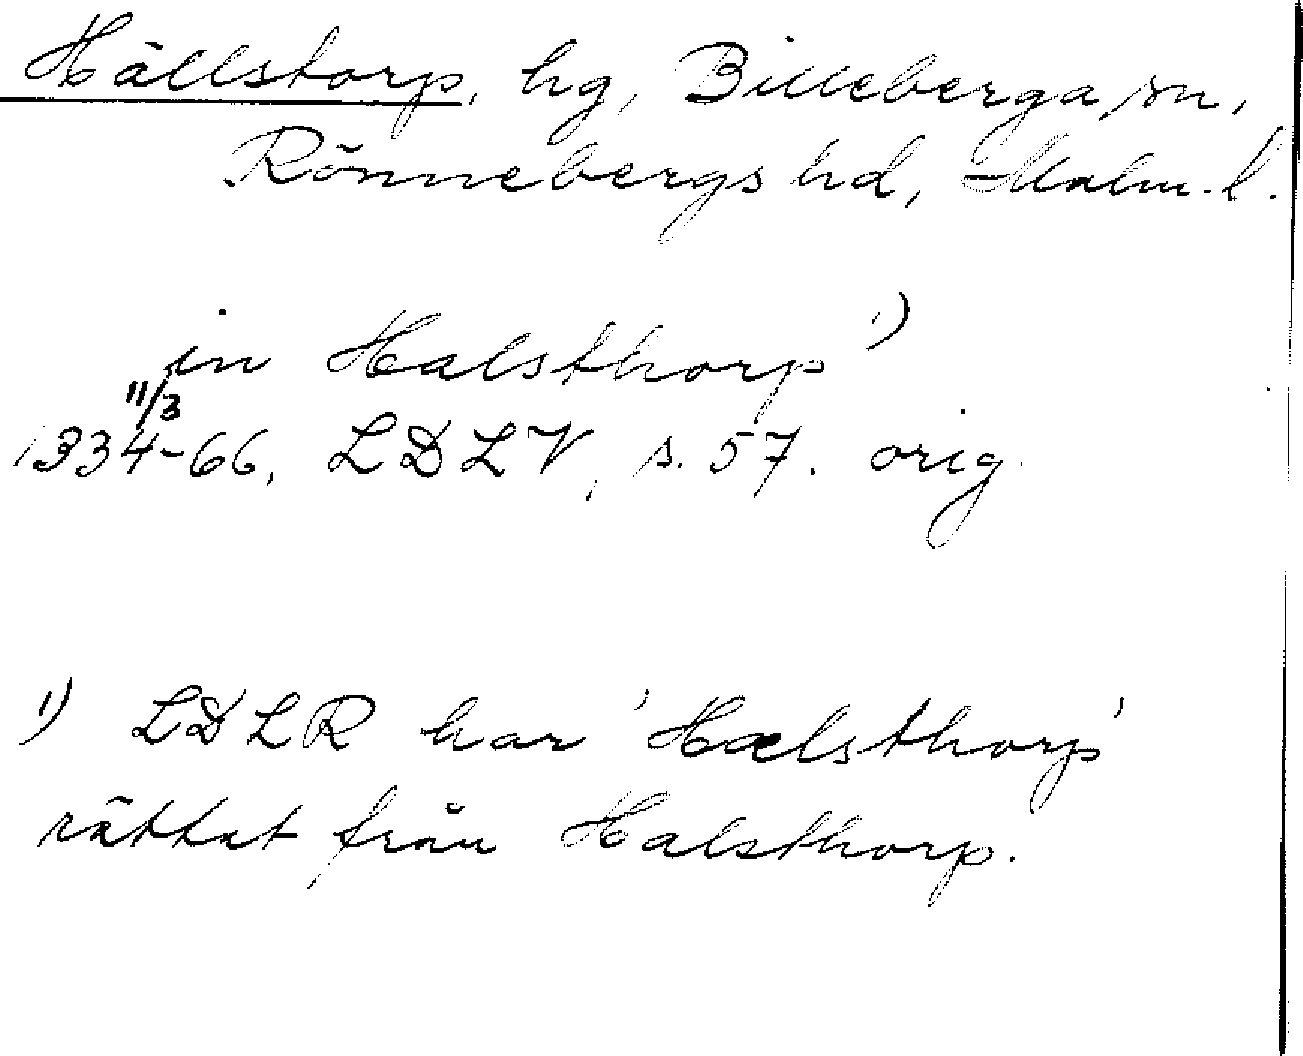 Hällstorp, hg, Billeberga sn,
Rönnebergs hd, Malm. l.
in Halsthorp 1)
11/3
1334-66, LDLV, s. 57. orig.
1) LDLR har 'Hælsthorp'
rättat från Halsthorp.